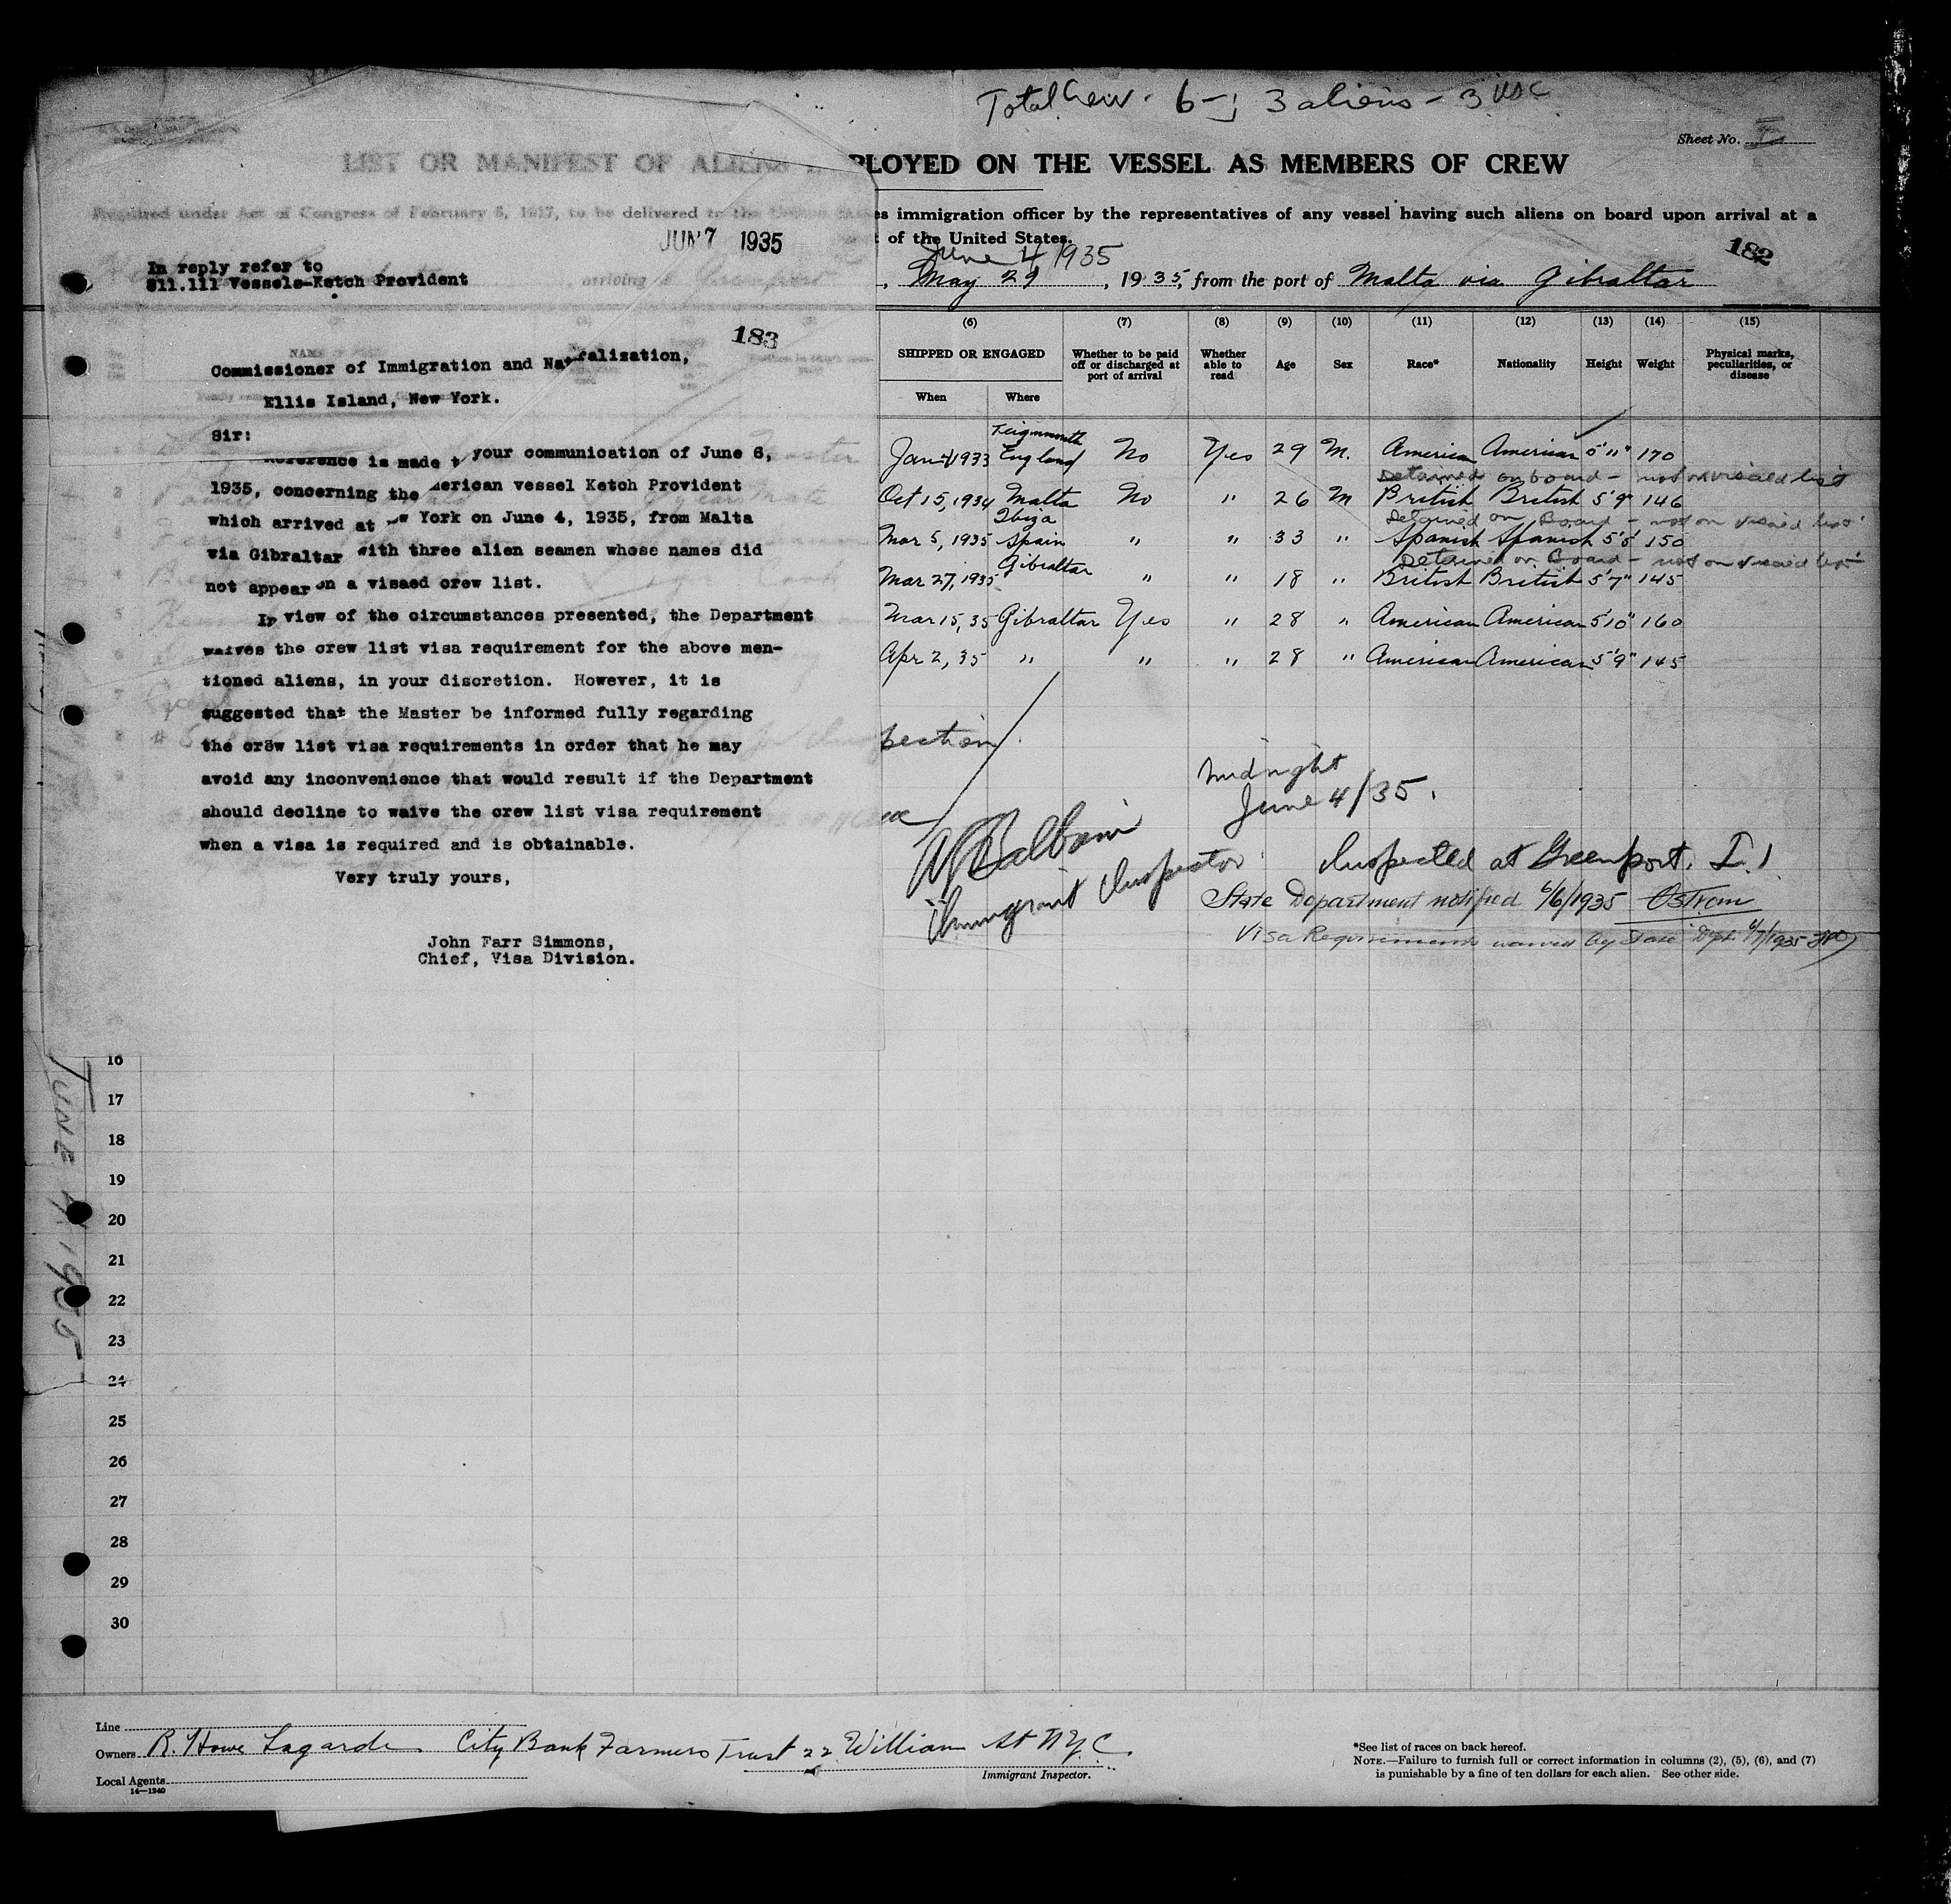 Total Crew - 6 - ; 3 aliens - 3 USC
Sheet No.
LIST OR MANIFEST OF ALIENS
PLOYED ON THE VESSEL AS MEMBERS OF CREW
Required under Act of Congress of February 5, 1917, to be delivered to the
es immigration officer by the representatives of any vessel having such aliens on board upon arrival at a
of the United States.
182
June 4 1935
, May 29, 1935, from the port of Malta via Gibraltar
arriving
JUN 7 1935
In reply refer to
811.111 Vessels-Ketch Provident
183
Commissioner of Immigration and Naturalization,
Ellis Island, New York.
Sir:
Reference is made t your communication of June 6,
1935, concerning the merican vessel Ketch Provident
which arrived at New York on June 4, 1935, from Malta
via Gibraltar with three alien seamen whose names did
not appear on a visaed crew list.
In view of the circumstances presented, the Department
waives the crew list visa requirement for the above men-
tioned aliens, in your discretion. However, it is
suggested that the Master be informed fully regarding
the crew list visa requirements in order that he may
avoid any inconvenience that would result if the Department
should decline to waive the crew list visa requirement
when a visa is required and is obtainable.
Very truly yours,
John Farr Simmons,
Chief, Visa Division.
(6) (7) (8) (9) (10) (11) (12) (13) (14) (15)
SHIPPED OR ENGAGED
When Where
Whether to be paid off or discharged at port of arrival
Whether able to read
Age Sex Race* Nationality Height Weight
Physical marks, peculiarities, or disease
Jan 1933 Teignmouth England No Yes 29 M. American American 5'11" 170
Detained on board - not on visaed list
Oct 15, 1934 Malta No " 26 M British British 5'9" 146
Detained on Board - not on visaed list
Mar 5, 1935 Ibiza Spain " " 33 " Spanish Spanish 5'5" 150
Detained on Board - not on visaed list
Mar 27, 1935 Gibraltar " " 18 " British British 5'7" 145
Mar 15, 35 Gibraltar Yes " 28 " American American 5'10" 160
Apr 2, 35 " " " 28 " American American 5'9" 145
pection
Midnight
June 4/35.
Immigrant Inspector
Inspected at Greenport, L.I.
State Department notified 6/6/1935 Ostrom
Visa Requirements waived by State Dept 6/7/1935
June 4, 1935
16
17
18
19
20
21
22
23
24
25
26
27
28
29
30
Line
Owners R. Howe Lagarde City Bank Farmers Trust 22 William St N.Y.C.
Local Agents
14—1240
Immigrant Inspector.
*See list of races on back hereof.
NOTE.—Failure to furnish full or correct information in columns (2), (5), (6), and (7)
is punishable by a fine of ten dollars for each alien. See other side.